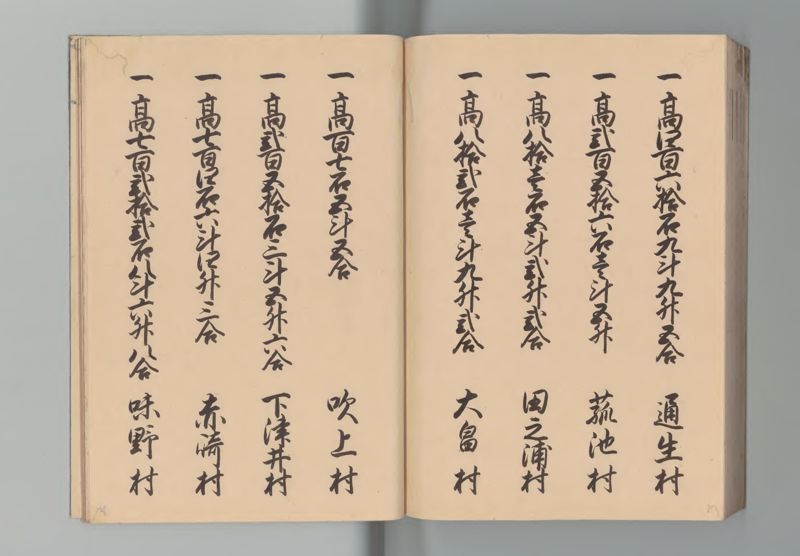 一高四百六拾石九斗九升五合 通生村
一高弐百五拾六石壱斗五升 菰池村
一高八拾壱石五斗弐升弐合 田之浦村
一高八拾弐石壱斗九升弐合 大畠村
一高百七石五斗五合 吹上村
一高弐百五拾石三斗五升六合 下津井村
一高七百四石六斗四升三合 赤崎村
一高七百弐拾弐石八斗六升八合 味野村